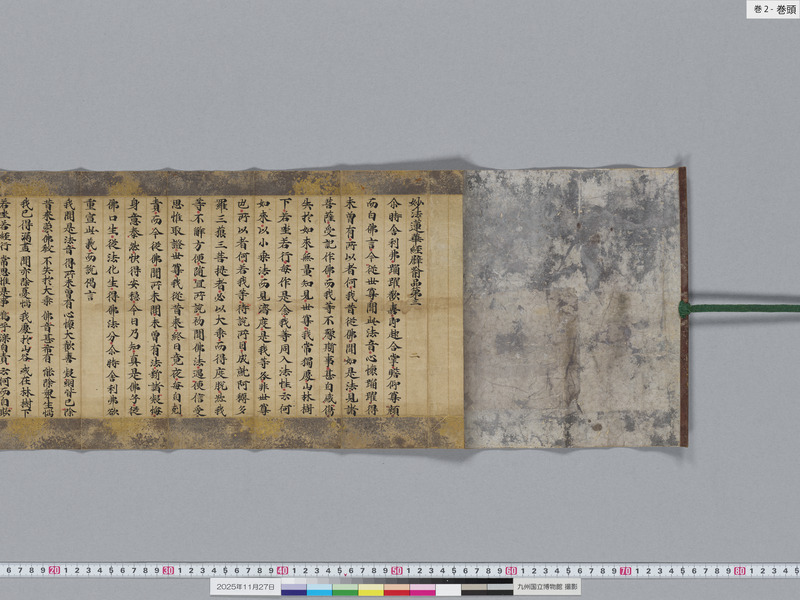 巻 2 - 巻頭
妙法蓮華經譬喻品第三
二
尒時舍利弗踊躍歡喜即起合掌瞻仰尊顏
而白佛言今從世尊聞此法音心懷踊躍得
未曾有所以者何我昔從佛聞如是法見諸
菩薩受記作佛而我等不豫斯事甚自感傷
失於如來無量知見世尊我常獨處山林樹
下若坐若行每作是念我等同入法性云何
如來以小乘法而見濟度是我等咎非世尊
也所以者何若我等待說所因成就阿耨多
羅三藐三菩提者必以大乘而得度脫然我
等不解方便隨宜所說初聞佛法遇便信受
思惟取證世尊我從昔來終日竟夜每自剋
責而今從佛聞所未聞未曾有法斷諸疑悔
身意泰然快得安穩今日乃知真是佛子從
佛口生從法化生得佛法分尒時舍利弗欲
重宣此義而說偈言
我聞是法音 得所未曾有 心懷大歡喜 疑網皆已除
昔來蒙佛教 不失於大乘 佛音甚希有 能除眾生惱
我已得漏盡 聞亦除憂惱 我處於山谷 或在林樹下
若坐若經行 常思惟是事 嗚呼深自責 云何而自欺
6 7 8 9 20 1 2 3 4 5 6 7 8 9 30 1 2 3 4 5 6 7 8 9 40 1 2 3 4 5 6 7 8 9 50 1 2 3 4 5 6 7 8 9 60 1 2 3 4 5 6 7 8 9 70 1 2 3 4 5 6 7 8 9 80 1 2 3 4 5
2025年11月27日
九州国立博物館 撮影